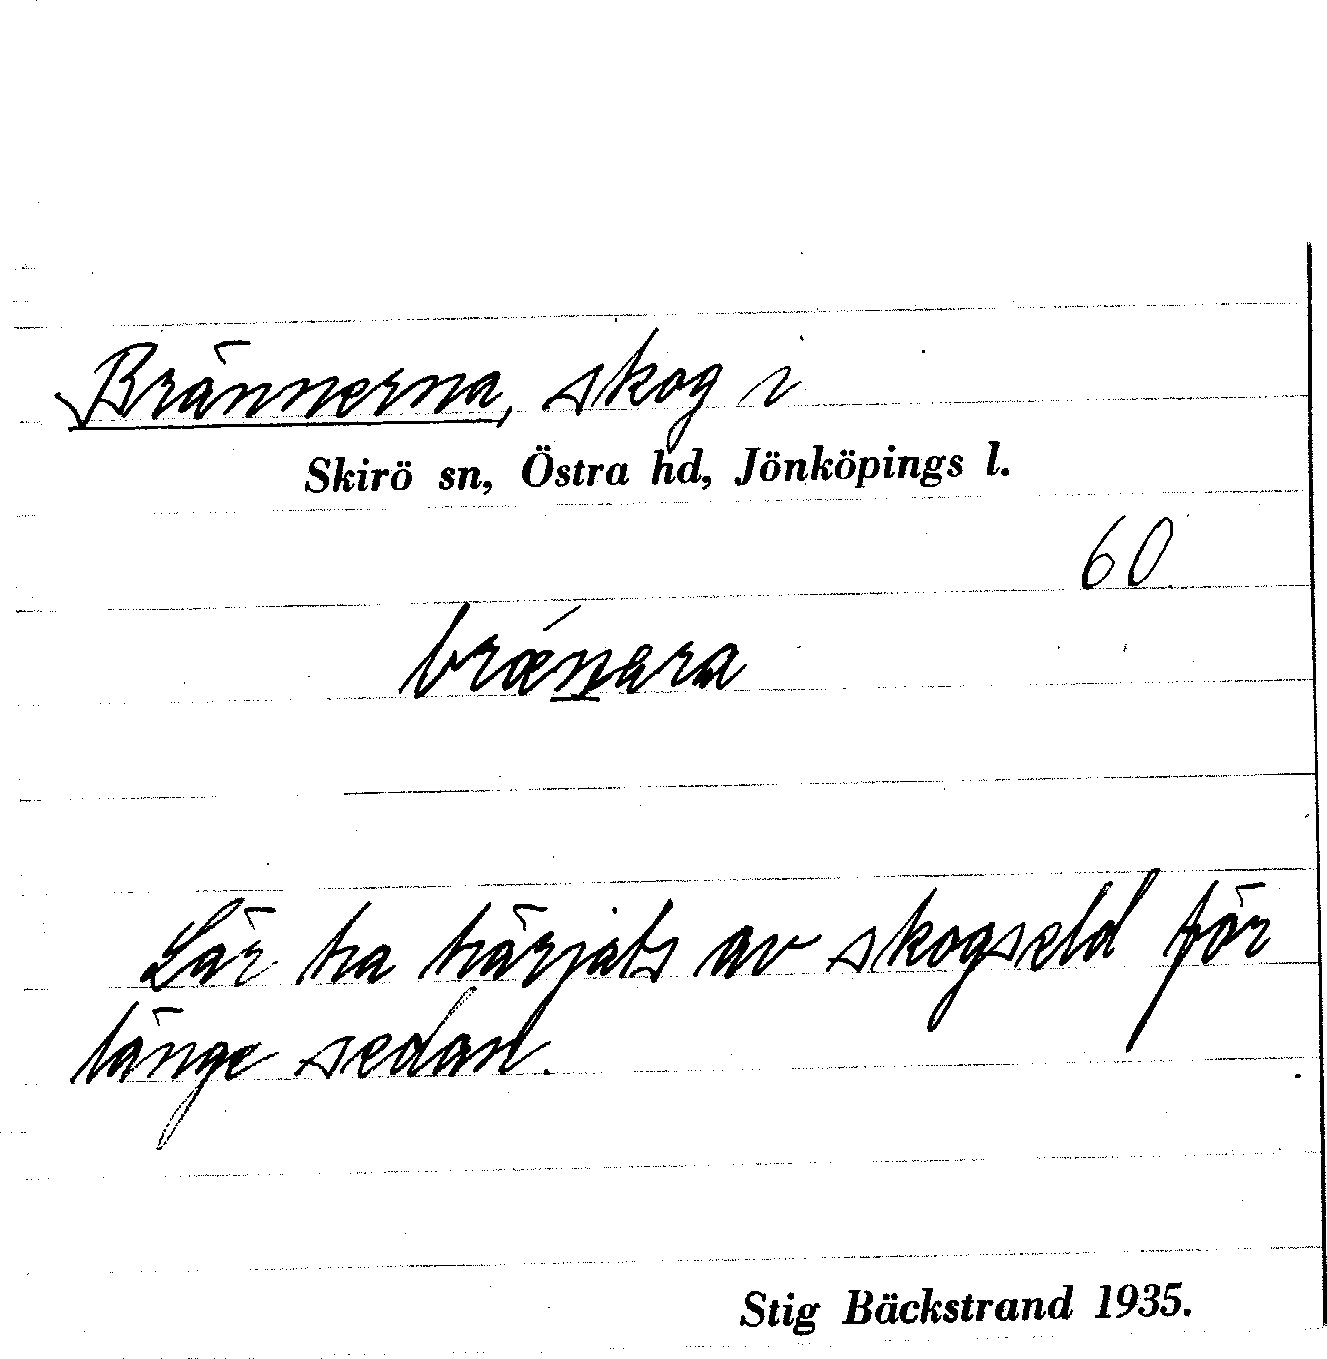 Brännerna, skog i
Skirö sn, Östra hd, Jönköpings l.
60
brǽnara
Lär ha härjats av skogseld för
länge sedan.
Stig Bäckstrand 1935.